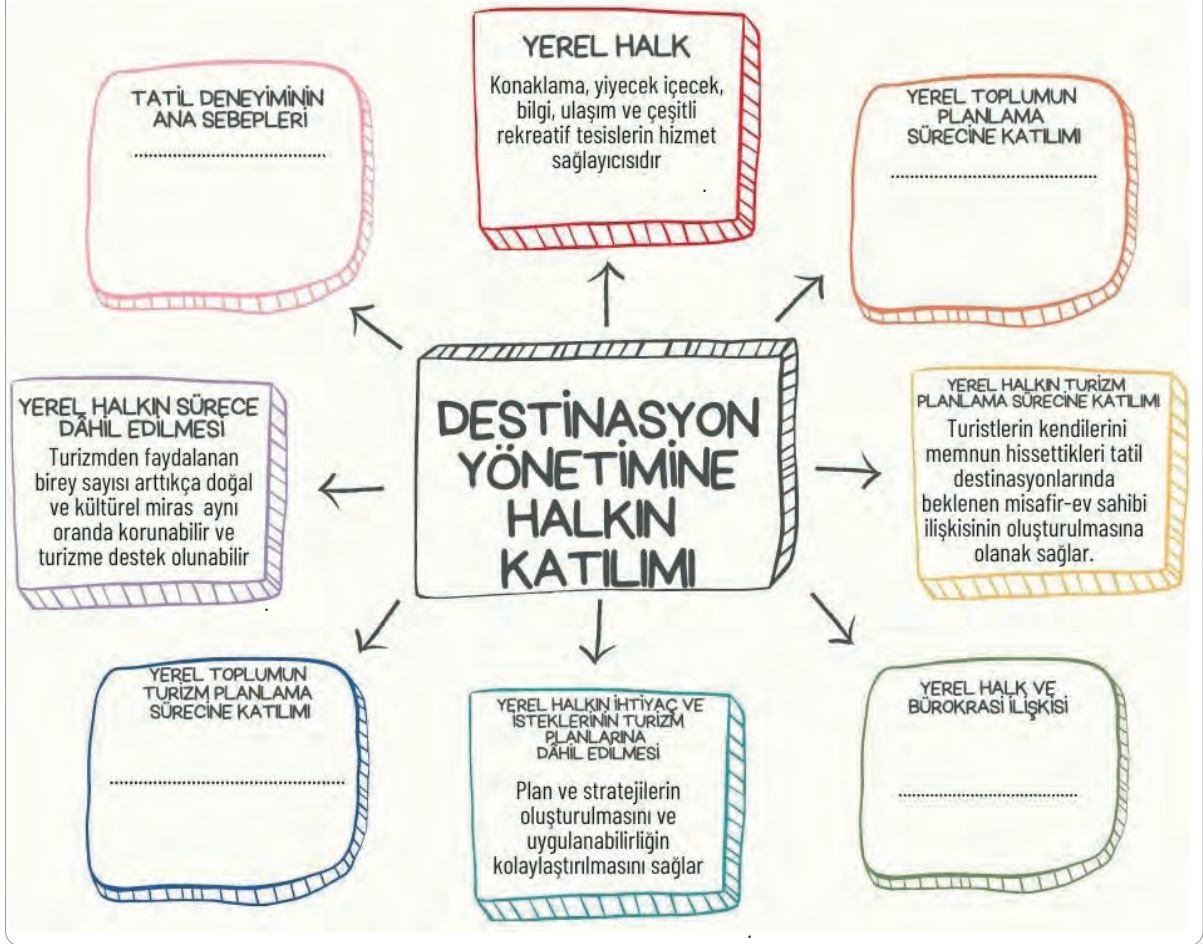 TATİL DENEYİMİNİN
ANA SEBEPLERİ
......................................
YEREL HALK
Konaklama, yiyecek içecek,
bilgi, ulaşım ve çeşitli
rekreatif tesislerin hizmet
sağlayıcısıdır
.
YEREL TOPLUMUN
PLANLAMA
SÜRECİNE KATILIMI
.........................................
YEREL HALKIN SÜRECE
DÂHİL EDİLMESİ
Turizmden faydalanan
birey sayısı arttıkça doğal
ve kültürel miras aynı
oranda korunabilir ve
turizme destek olunabilir
.
DESTİNASYON
YÖNETİMİNE
HALKIN
KATILIMI
YEREL HALKIN TURİZM
PLANLAMA SÜRECİNE KATILIMI
Turistlerin kendilerini
memnun hissettikleri tatil
destinasyonlarında
beklenen misafir-ev sahibi
ilişkisinin oluşturulmasına
olanak sağlar.
YEREL TOPLUMUN
TURİZM PLANLAMA
SÜRECİNE KATILIMI
...............................................
YEREL HALKIN İHTİYAÇ VE
İSTEKLERİNİN TURİZM
PLANLARINA
DÂHİL EDİLMESİ
Plan ve stratejilerin
oluşturulmasını ve
uygulanabilirliğin
kolaylaştırılmasını sağlar
.
YEREL HALK VE
BÜROKRASİ İLİŞKİSİ
....................................